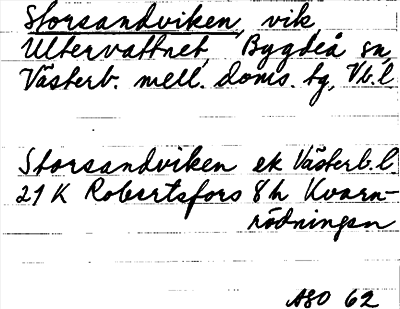 Storsandviken, vik
Ultervattnet, Bygdeå sn,
Västerb. mell. doms. tg, Vb.l
Storsandviken ek Västerb.l.
21 K Robertsfors 8h Kvarn-
rödningen
ASO 62